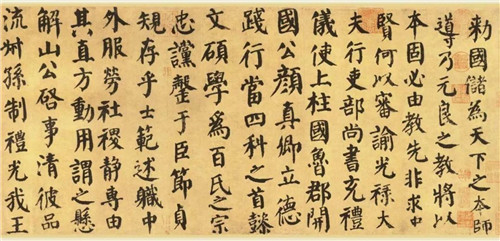 勑國儲為天下之本師
導乃元良之教將以
本固必由教先非求忠
賢何以審諭光祿大
夫行吏部尚書充禮
儀使上柱國魯郡開
國公顏真卿立德
踐行當四科之首懿
文碩學為百氏之宗
忠讜罄于臣節貞
規存乎士範述職中
外服勞社稷靜專由
其直方動用謂之懸
解山公啓事清彼品
流叔孫制禮光我王